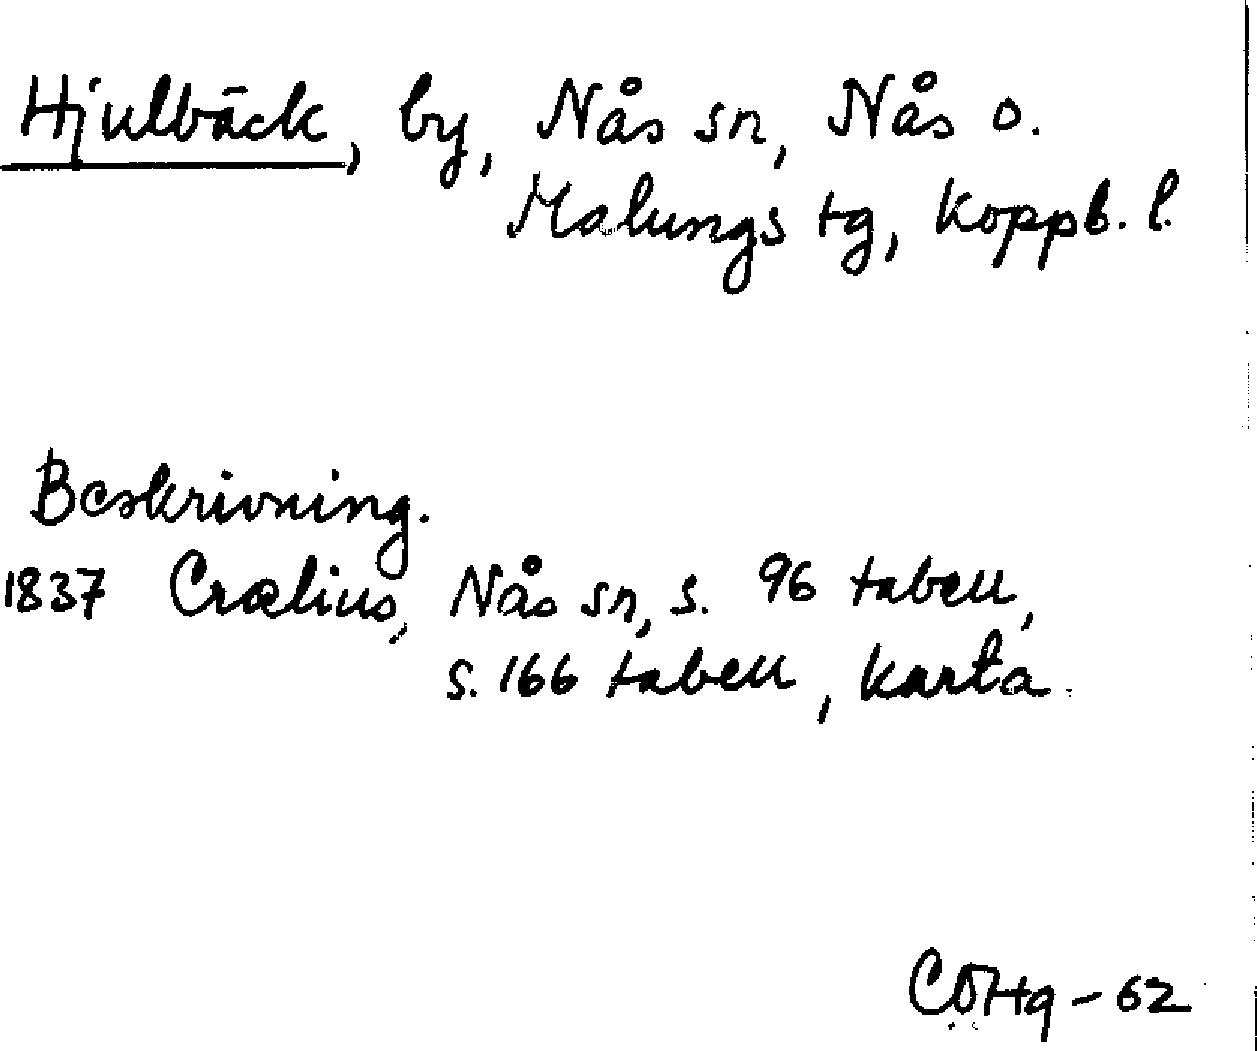 Hjulbäck, by, Nås sn, Nås o.
Malungs tg, Koppb. l.
Beskrivning.
1837 Crælius, Nås sn, s. 96 tabell,
s. 166 tabell, karta.
CÖHg - 62